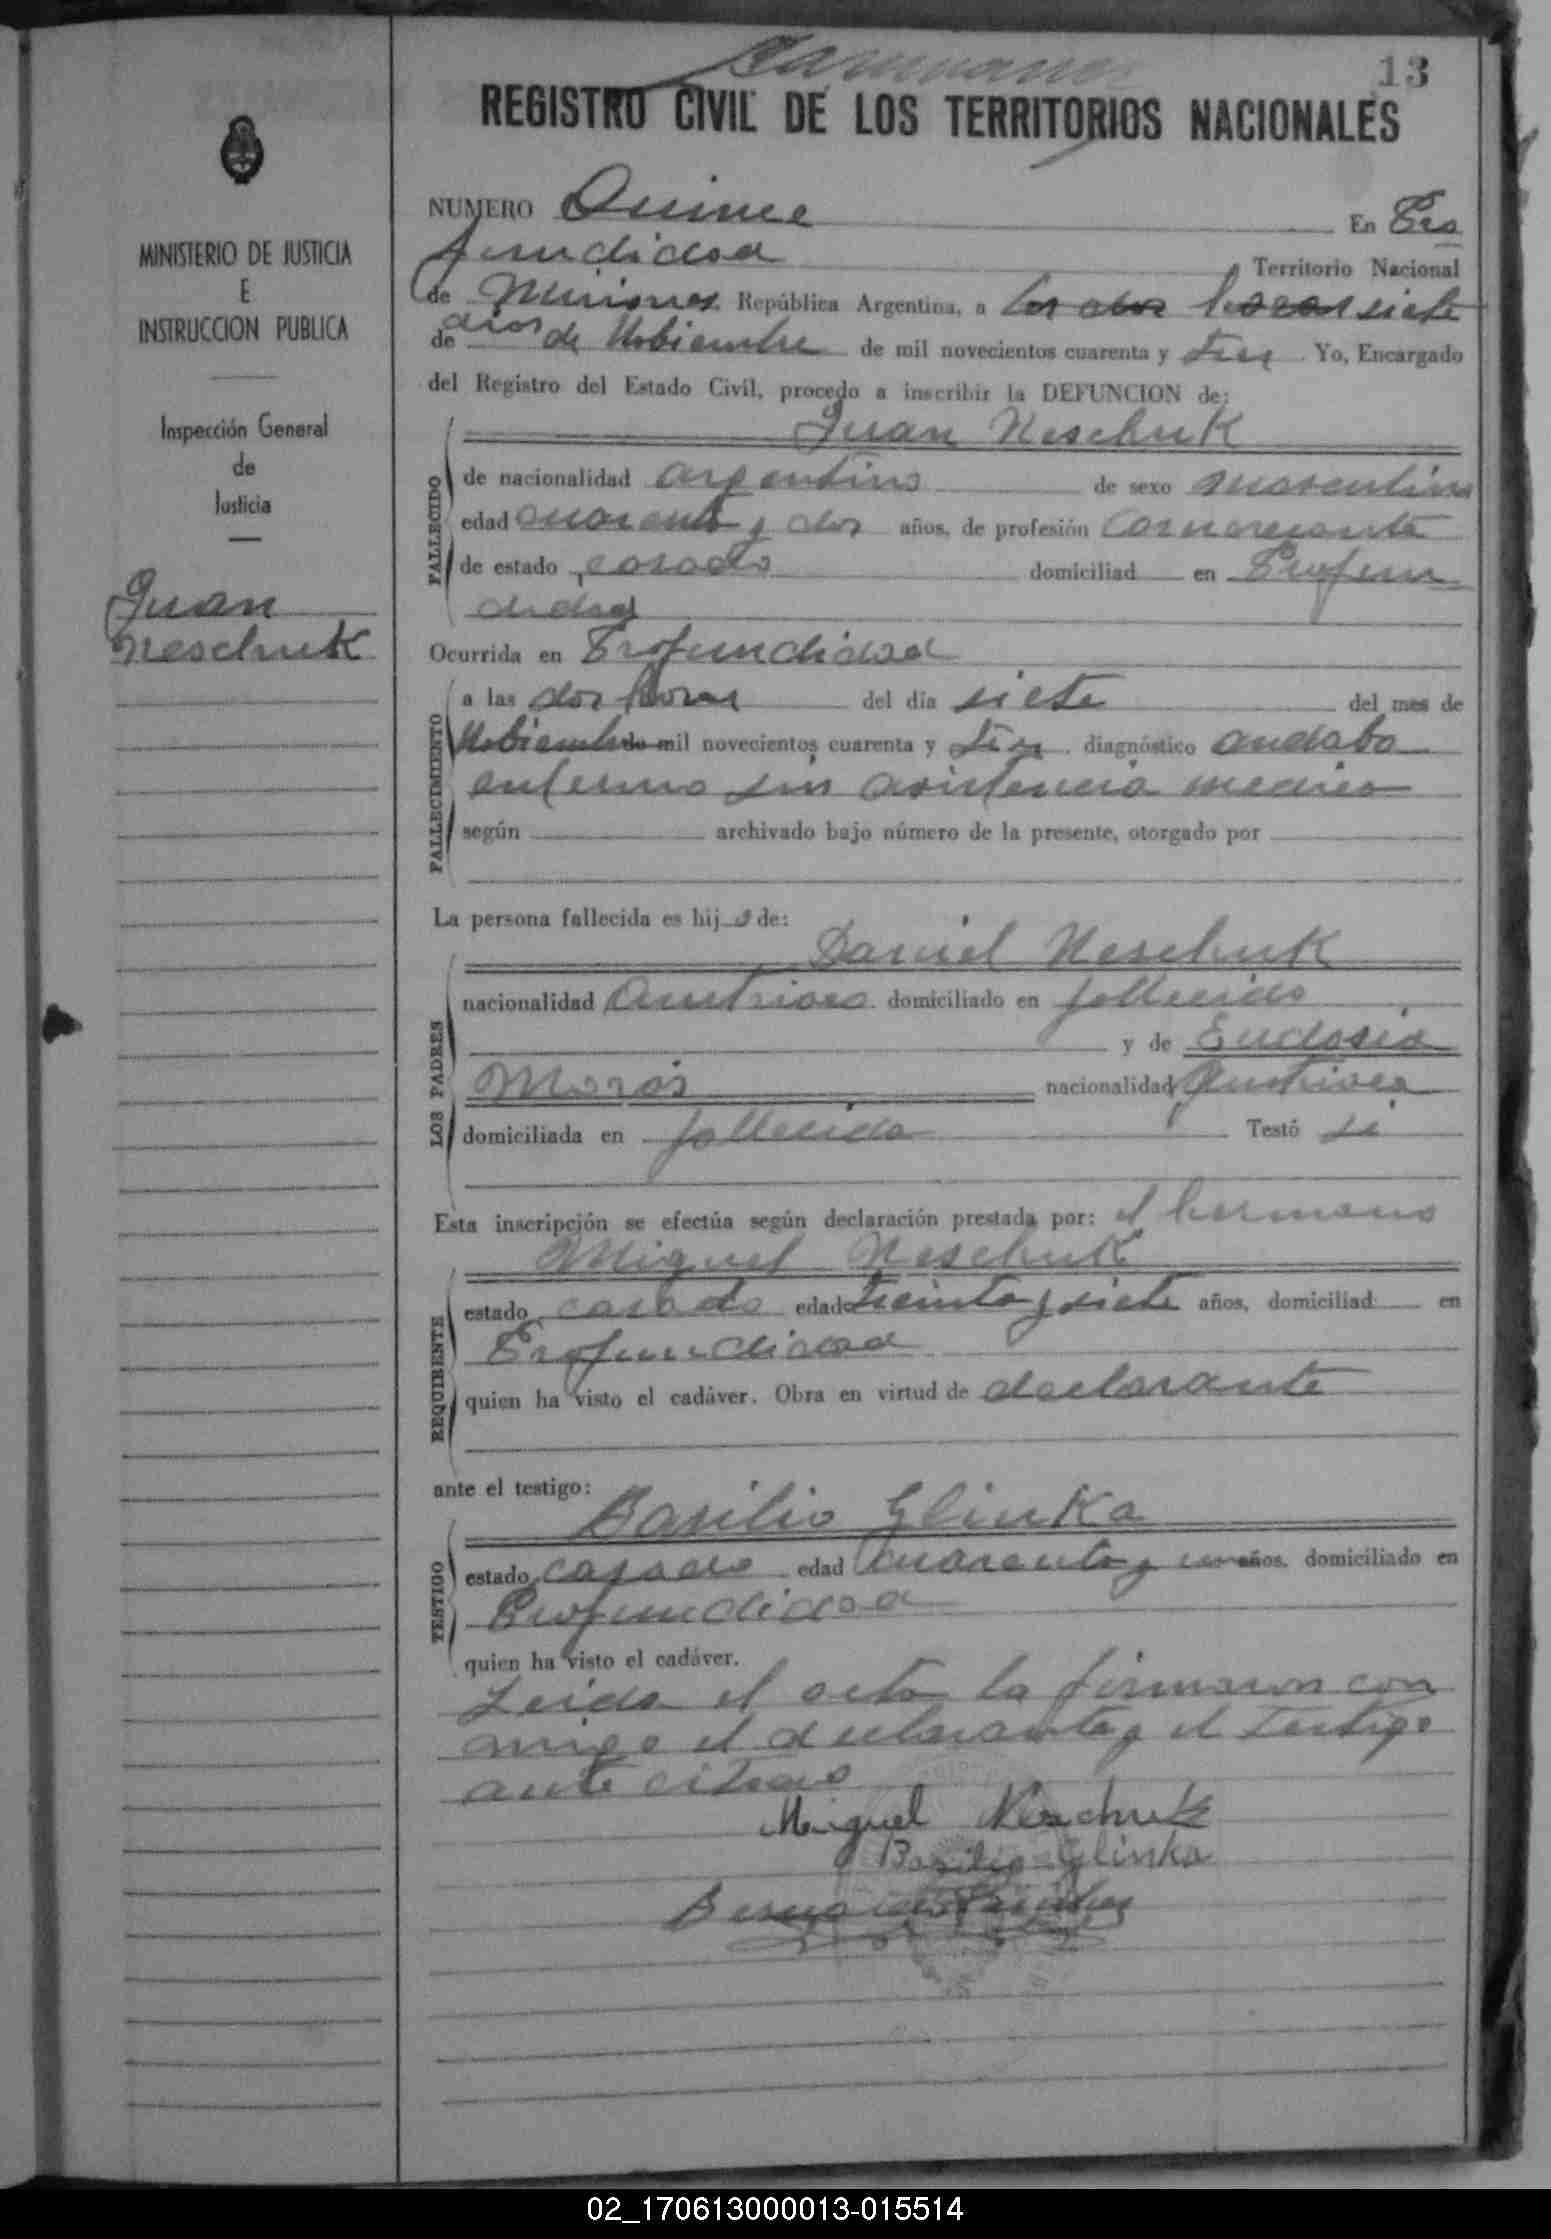 13
REGISTRO CIVIL DE LOS TERRITORIOS NACIONALES
MINISTERIO DE JUSTICIA
E
INSTRUCCION PUBLICA
Inspección General
de
Justicia
Juan
Neschuk
NUMERO Quince En Pro
fundidad Territorio Nacional
de Misiones República Argentina, a los dos horas siete
de dias de Nobiembre de mil novecientos cuarenta y tres Yo, Encargado
del Registro del Estado Civil, procedo a inscribir la DEFUNCION de:
Juan Neschuk
FALLECIDO
de nacionalidad argentino de sexo masculino
edad cuarenta y dos años, de profesión comerciante
de estado casado domiciliad en Profun
didad
Ocurrida en Profundidad
FALLECIMIENTO
a las dos horas del día siete del mes de
Nobiembre de mil novecientos cuarenta y tres diagnóstico andaba
enfermo sin asistencia medica
según archivado bajo número de la presente, otorgado por
La persona fallecida es hij o de:
Daniel Neschuk
LOS PADRES
nacionalidad Austriaco domiciliado en fallecido
y de Eudosia
Moros nacionalidad Austriaca
domiciliada en fallecida Testó si
Esta inscripción se efectúa según declaración prestada por: el hermano
Miguel Neschuk
REQUIRENTE
estado casado edad treinta y siete años, domiciliad en
Profundidad
quien ha visto el cadáver. Obra en virtud de declarante
ante el testigo:
Basilio Glinka
TESTIGO
estado casado edad cuarenta y un años, domiciliado en
Profundidad
quien ha visto el cadáver.
Leida el acta la firmaron con
migo el declarante y el testigo
ante citado
Miguel Neschuk
Basilio Glinka
02_170613000013-015514